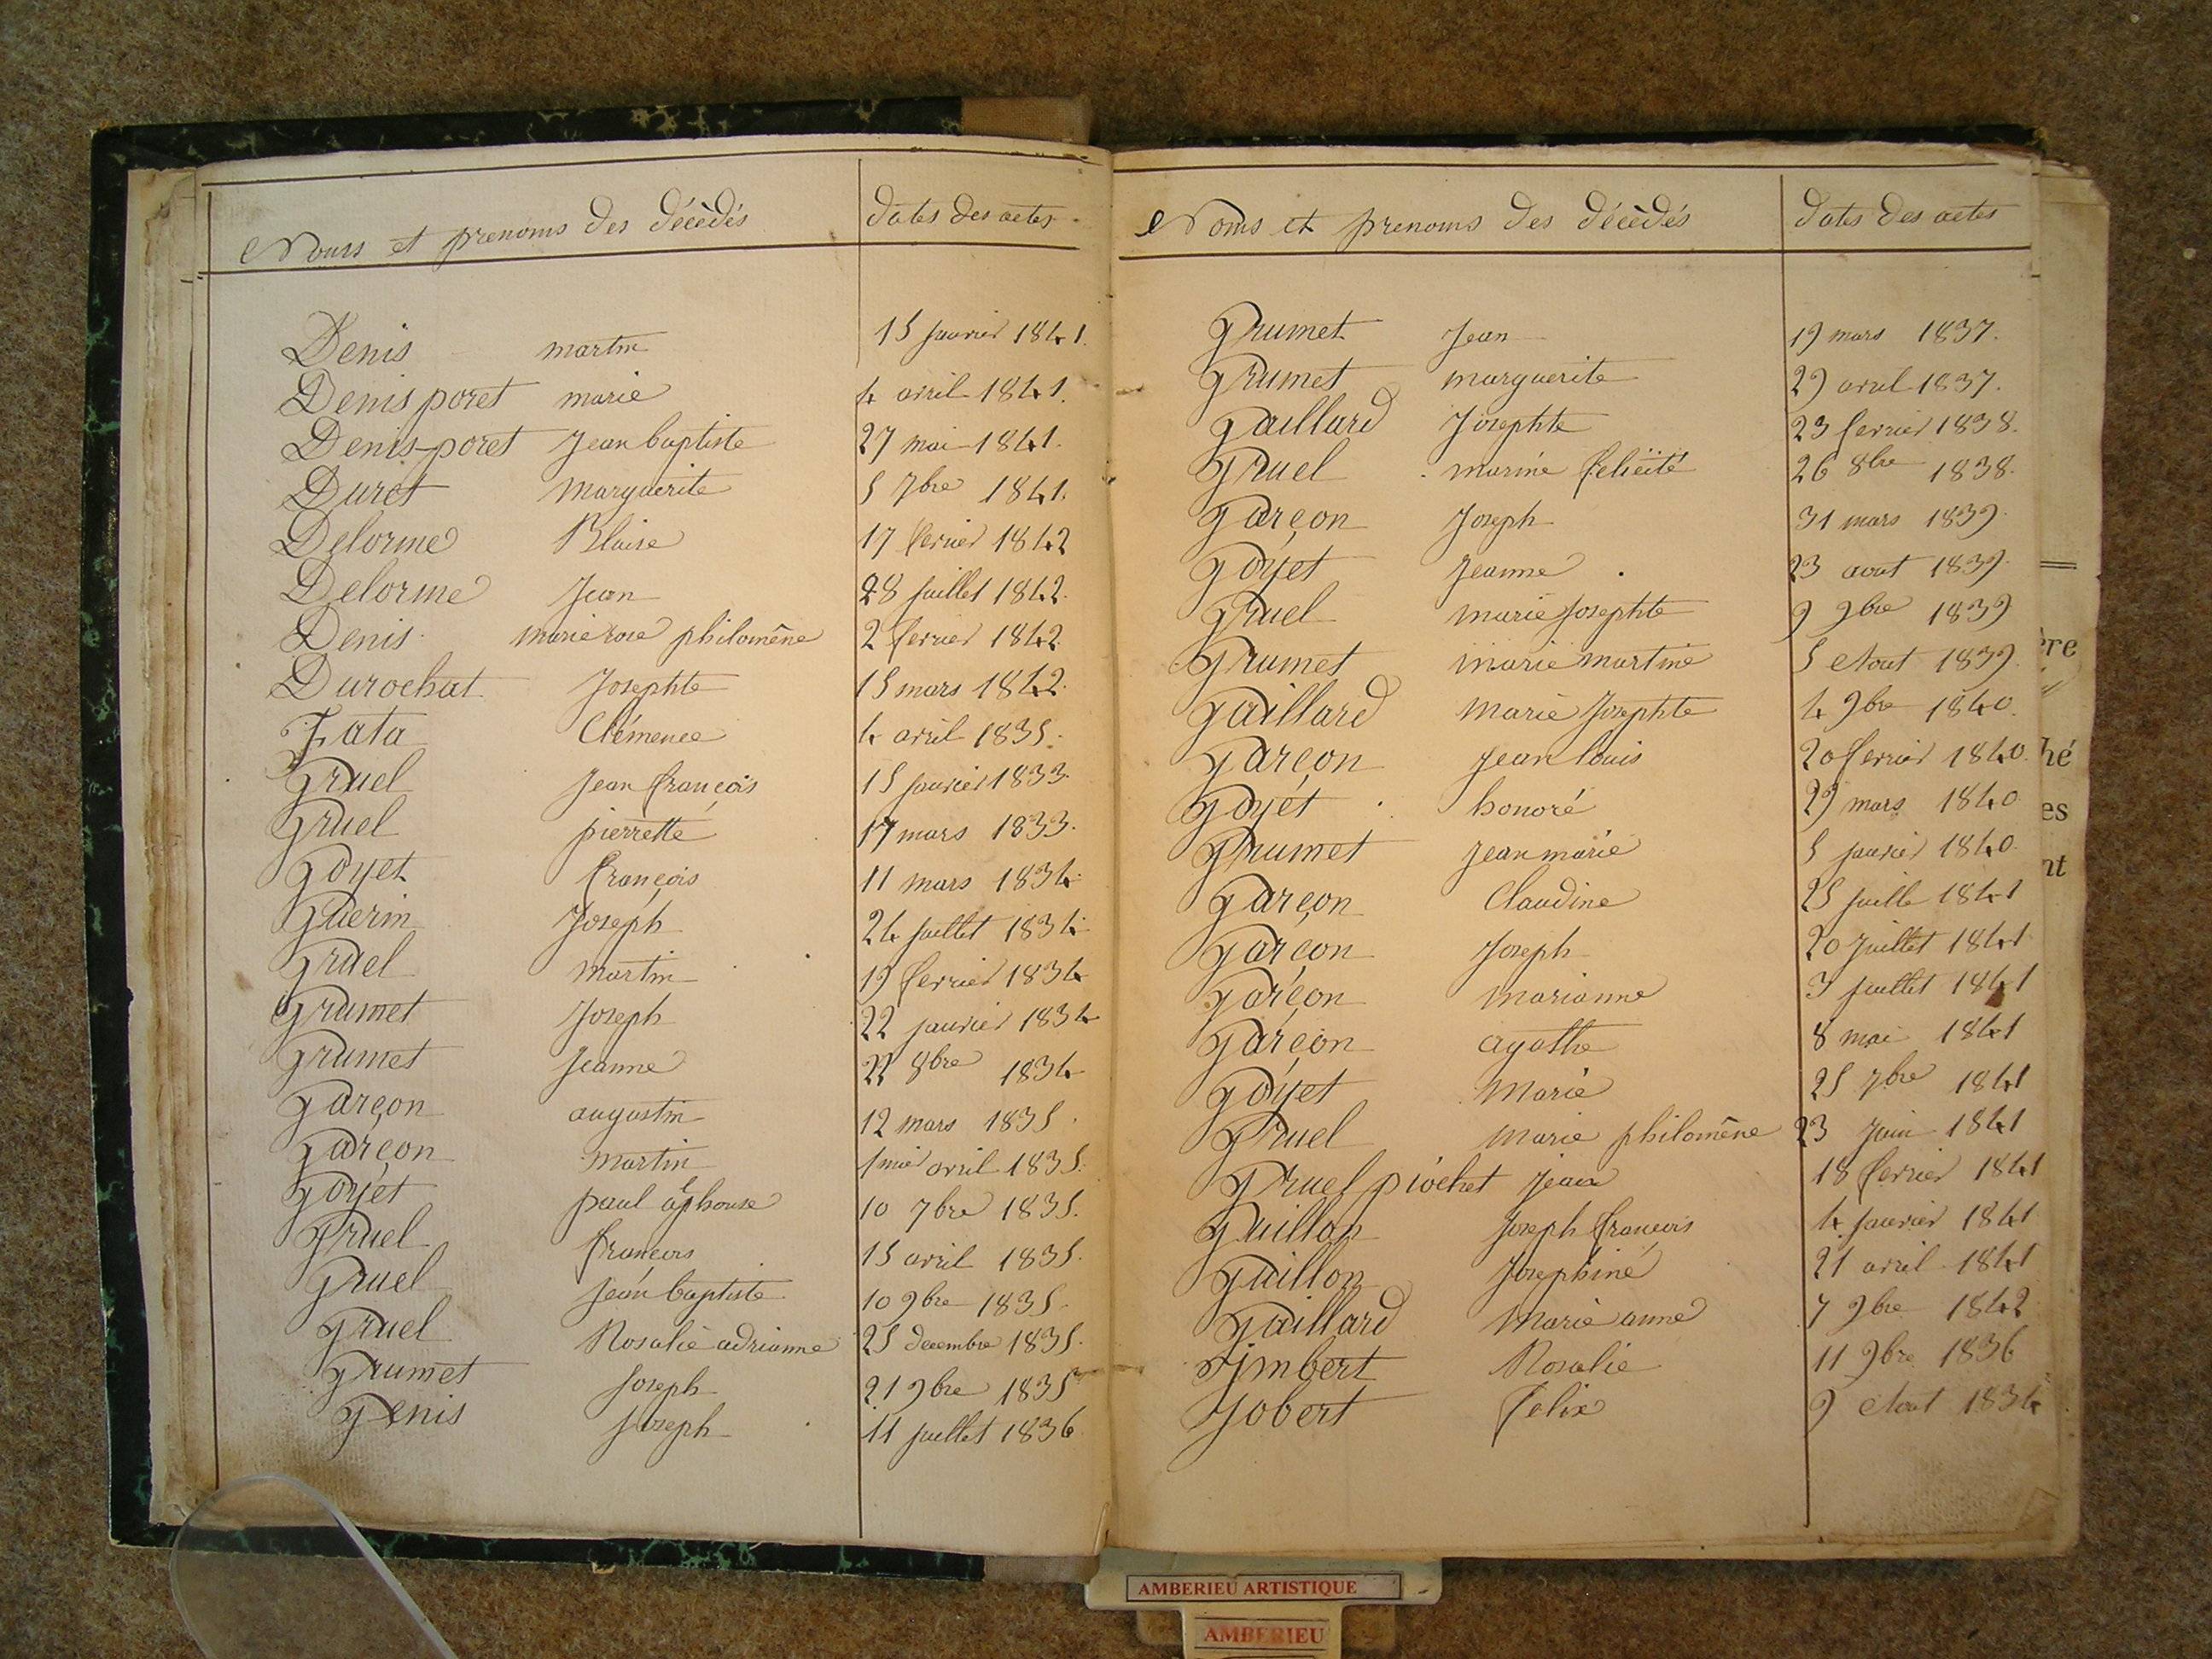 Noms et prenoms des décèdés dates des actes
Denis martin 15 janvier 1841.
Denis poret marie 4 avril 1841.
Denis-poret Jean baptiste 27 mai 1841.
Duret marguerite 5 7bre 1841.
Delorme Blaise 17 fevrier 1842
Delorme Jean 28 juillet 1842.
Denis marie rose philomêne 2 fevrier 1842.
Durochat Josephte 15 mars 1842.
Fata Clémence 4 avril 1835.
Gruel Jean françois 15 janvier 1833.
Gruel pierrette 17 mars 1833.
Goyet françois 11 mars 1834.
Guerin Joseph 24 juillet 1834.
Gruel martin 19 fevrier 1834
Grumet Joseph 22 janvier 1834
Grumet Jeanne 22 8bre 1834
Garçon augustin 12 mars 1835.
Garçon martin 1mier avril 1835.
Goyet paul alphonse 10 7bre 1835.
Gruel françois 15 avril 1835.
Gruel jean baptiste 10 9bre 1835.
Gruel Rosalie adrianne 25 decembre 1835.
Grumet Joseph 21 9bre 1835
Genis Joseph 11 juillet 1836
Noms et prenoms des décèdés dates des actes
Grumet Jean 19 mars 1837.
Grumet marguerite 29 avril 1837.
Gaillard Josephte 23 fevrier 1838.
Gruel marine feliçité 26 8bre 1838.
Garçon Joseph 31 mars 1839.
Goyet jeanne 23 aout 1839.
Gruel marie Josephte 9 9bre 1839
Grumet marie martine 5 Aout 1839.
Gaillard Marie Josephte 4 9bre 1840.
Garçon jean louis 20 fevrier 1840.
Goyet honoré 29 mars 1840
Grumet jean marie 5 janvier 1840.
Garçon Claudine 25 juille 1841
Garçon Joseph 20 Juillet 1841
Garçon marianne 3 juillet 1841
Garçon agathe 8 mai 1841
Goyet Marie 25 7bre 1841
Gruel marie philomêne 23 Juin 1841
Gruel piochet jean 18 fevrier 1841
Guillon Joseph françois 4 janvier 1841
Guillon Josephine 21 avril 1841
Gaillard Marie anne 7 9bre 1842
Imbert Rosalie 11 9bre 1836
Jobert felix 9 Aout 1834
ère
hé
es
nt
AMBERIEU ARTISTIQUE
AMBERIEU